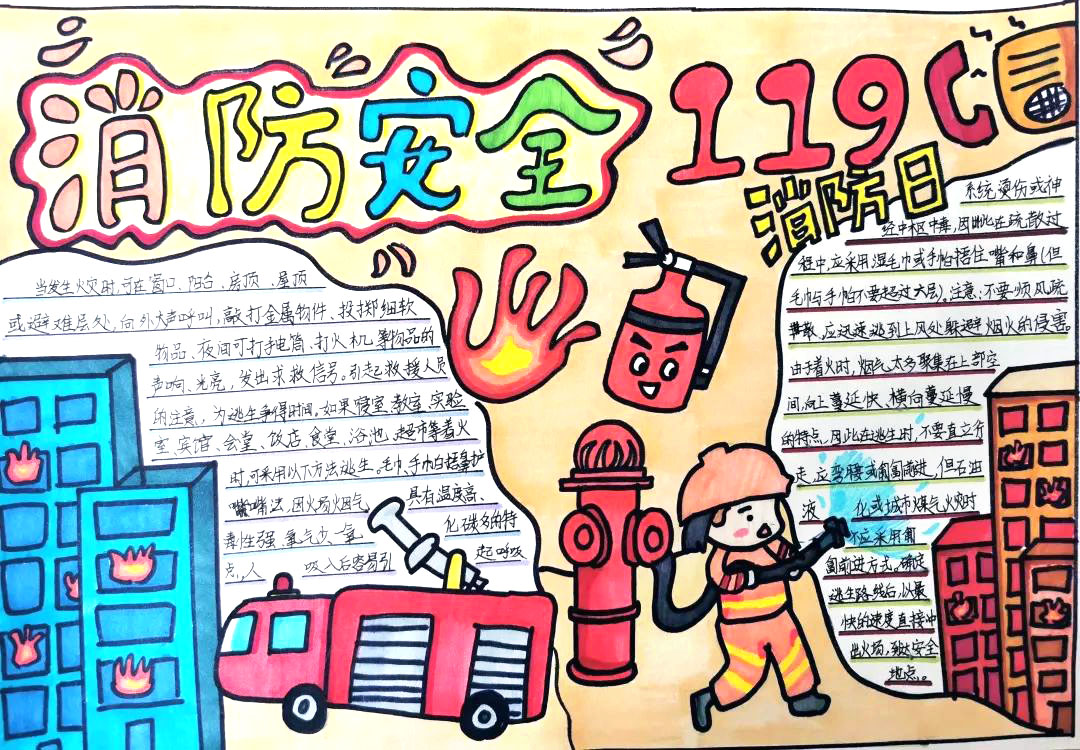 消防安全
119
消防日
当发生火灾时,可在窗口、阳台、房顶、屋顶
或避难层处,向外大声呼叫,敲打金属物件、投掷细软
物品、夜间可打手电筒、打火机等物品的
声响、光亮,发出求救信号。引起救援人员
的注意,为逃生争得时间。如果寝室、教室、实验
室、宾馆、会堂、饭店、食堂、浴池、超市等着火
时,可采用以下方法逃生。毛巾、手帕捂鼻护
嘴法,因火场烟气 具有温度高、
毒性强、氧气少、一氧 化碳多的特
点,人 吸入后容易引 起呼吸
系统烫伤或神
经中枢中毒,因此在疏散过
程中,应采用湿毛巾或手帕捂住嘴和鼻(但
毛巾与手帕不要超过六层)。注意:不要顺风疏
散,应迅速逃到上风处躲避烟火的侵害。
由于着火时,烟气太多聚集在上部空
间,向上蔓延快、横向蔓延慢
的特点,因此在逃生时,不要直立行
走,应弯腰或匍匐前进,但石油
液 化或城市煤气火灾时
不应采用匍
匐前进方式。确定
逃生路线后,以最
快的速度直接冲
出火场,到达安全
地点。